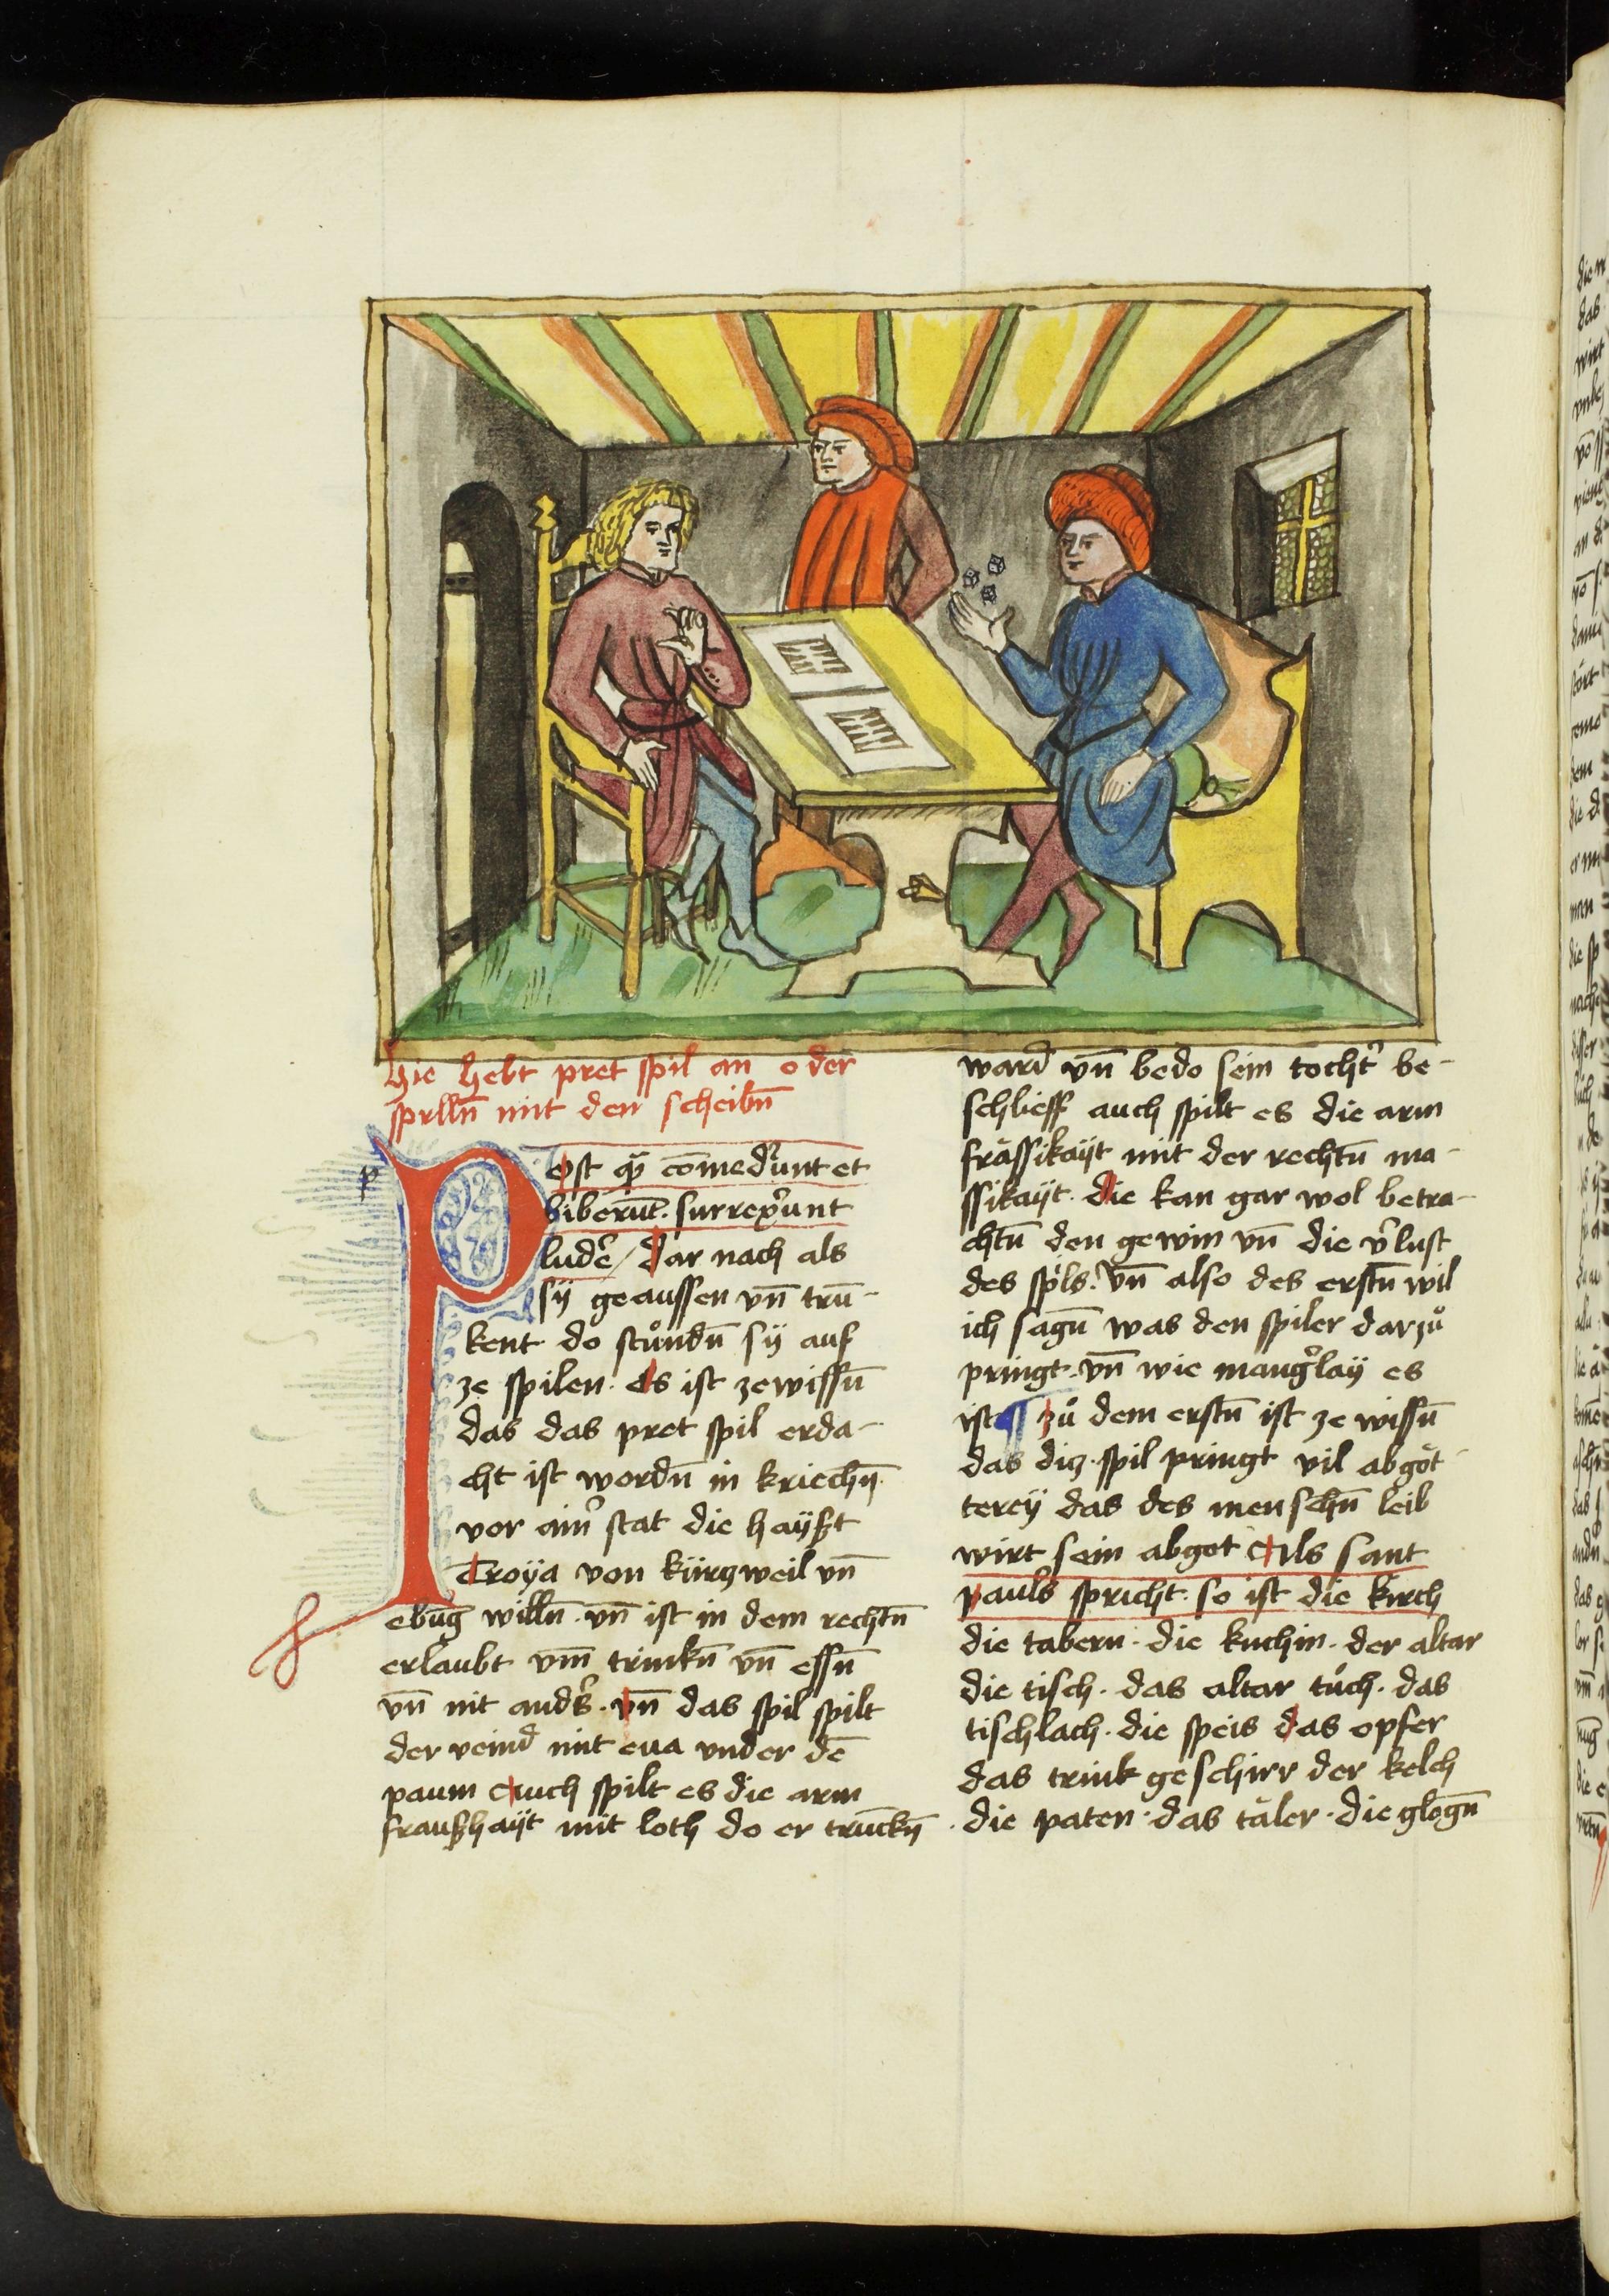 hie hebt pret spil an oder
sprlln̄ mit den scheibn̄
p
Post qꝫ com̄edert̄unt et
biberūt · surrex̄unt
luder̄ / dar nach als
sÿ geaussen vn̄ trū-
kent do stůndn̄ sÿ auf
ze spilen · es ist ze wissn̄
das das pret spil erda-
cht ist wordn̄ in kriechn̄ ·
vor ain̄ stat die haÿßt
Troÿa von kürczweil vn̄
ebūg willn̄ · vn̄ ist in dem rechtn̄
erlaubt vm̄ trinkn̄ vn̄ essn̄
vn̄ nit anders̄ · vn̄ das spil spilt
der veind mit eua vnder dē
paum Auch spilt es die arm
fraußhaÿt mit loth do er trūckn̄
ward vn̄ bedo sein tocht̄ be-
schlieff auch spilt es die arm
frässikaÿt mit der rechtn̄ ma-
ssikaÿt · die kan gar wol betra-
chtn̄ den gewin vn̄ die v̄lust
des spils · Vn̄ also des erstn̄ wil
ich sagn̄ was den spiler darzů
pringt · vn̄ wie manḡlaÿ es
ist ¶ zů dem erstn̄ ist ze wissn̄
das diz spil pringt vil abgöt-
tereÿ das des menschn̄ leib
wirt sein abgot Als sant
pauls spricht · so ist die kirch
die tabern · die kuchin · der altar
die tisch · das altar tůch · das
tischlach · die speis das opfer
das trink geschirr der kelch
die paten · das täler · die glogn̄